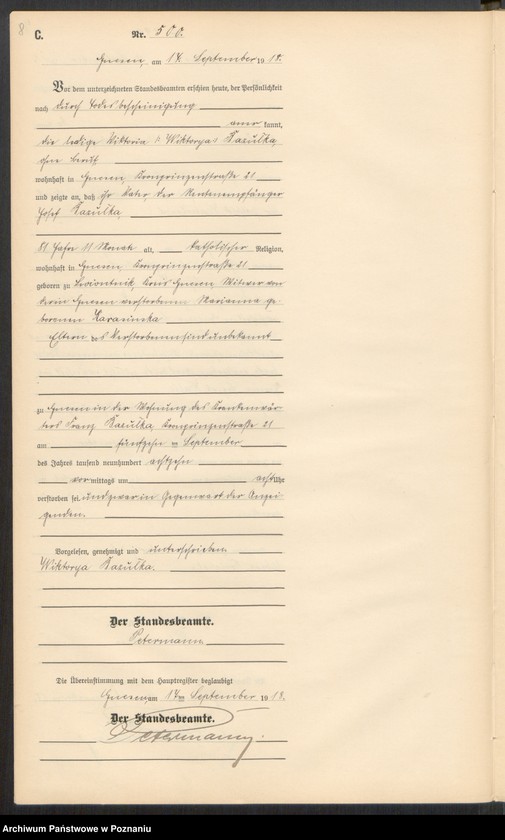 8
C.
Nr. 500.
Gnesen, am 17. September 1918.
Vor dem unterzeichneten Standesbeamten erschien heute, der Persönlichkeit
nach durch Todesbescheinigung
aner kannt,
die ledige Viktoria "Wiktorya" Kaczułka,
ohne Beruf
wohnhaft in Gnesen, Kronprinzenstraße 21
und zeigte an, daß ihr Vater, der Rentenempfänger
Josef
81 Jahre 11 Monate alt, katholischer Religion,
wohnhaft in Gnesen, Kronprinzenstraße 21
geboren zu Kreis Gnesen, Witwer von
der in Gnesen verstorbenen Marianna ge-
borenen
Eltern des Verstorbenen sind unbekannt
zu Gnesen in der Wohnung des Krankenwär-
ters Franz Kronprinzenstraße 21
am fünfzehn ten September
des Jahres tausend neunhundert achtzehn
vor mittags um acht Uhr
verstorben sei und zwar in Gegenwart der Anzei-
genden.
Vorgelesen, genehmigt und unterschrieben
Wiktorya
Der Standesbeamte.
Petermann
Die Übereinstimmung mit dem Hauptregister beglaubigt
Gnesen, am 17ten September 1918.
Der Standesbeamte.
Petermann.
Archiwum Państwowe w Poznaniu